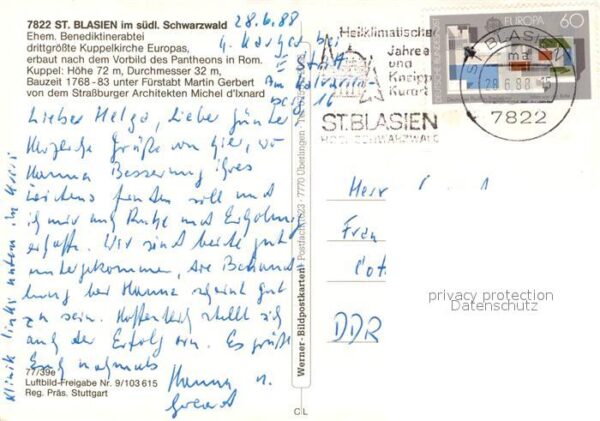 7822 ST. BLASIEN im südl. Schwarzwald
Ehem. Benediktinerabtei
drittgrößte Kuppelkirche Europas,
erbaut nach dem Vorbild des Pantheons in Rom.
Kuppel: Höhe 72 m, Durchmesser 32 m,
Bauzeit 1768-83 unter Fürstabt Martin Gerbert
von dem Straßburger Architekten Michel d'Ixnard
28.6.88
bei
16
Lieber Helga, lieber Günter
Herzliche Grüße von hier, wo
Hanna Besserung ihres
Leidens finden soll und
ich mir auch Ruhe und Erholung
erhoffe. Wir sind beide gut
untergekommen, die Behand
lung bei Hanna scheint gut
zu sein. Hoffentlich stellt sich
auch der Erfolg ein. Es grüßt
Euch nochmals
Hanna u.
Klinik links unten im Kreis
77/39e
Luftbild-Freigabe Nr. 9/103 615
Reg. Präs. Stuttgart
Werner-Bildpostkarten Postfach 1523 · 7770 Überlingen
C L
Heilklimatischer
Jahre
und
Kneipp
Kurort
ST.BLASIEN
HOCHSCHWARZWALD
DEUTSCHE BUNDESPOST
EUROPA
60
ST BLASIEN
ma
28.6.88-15
7822
Herr
Frau
DDR
privacy protection
Datenschutz